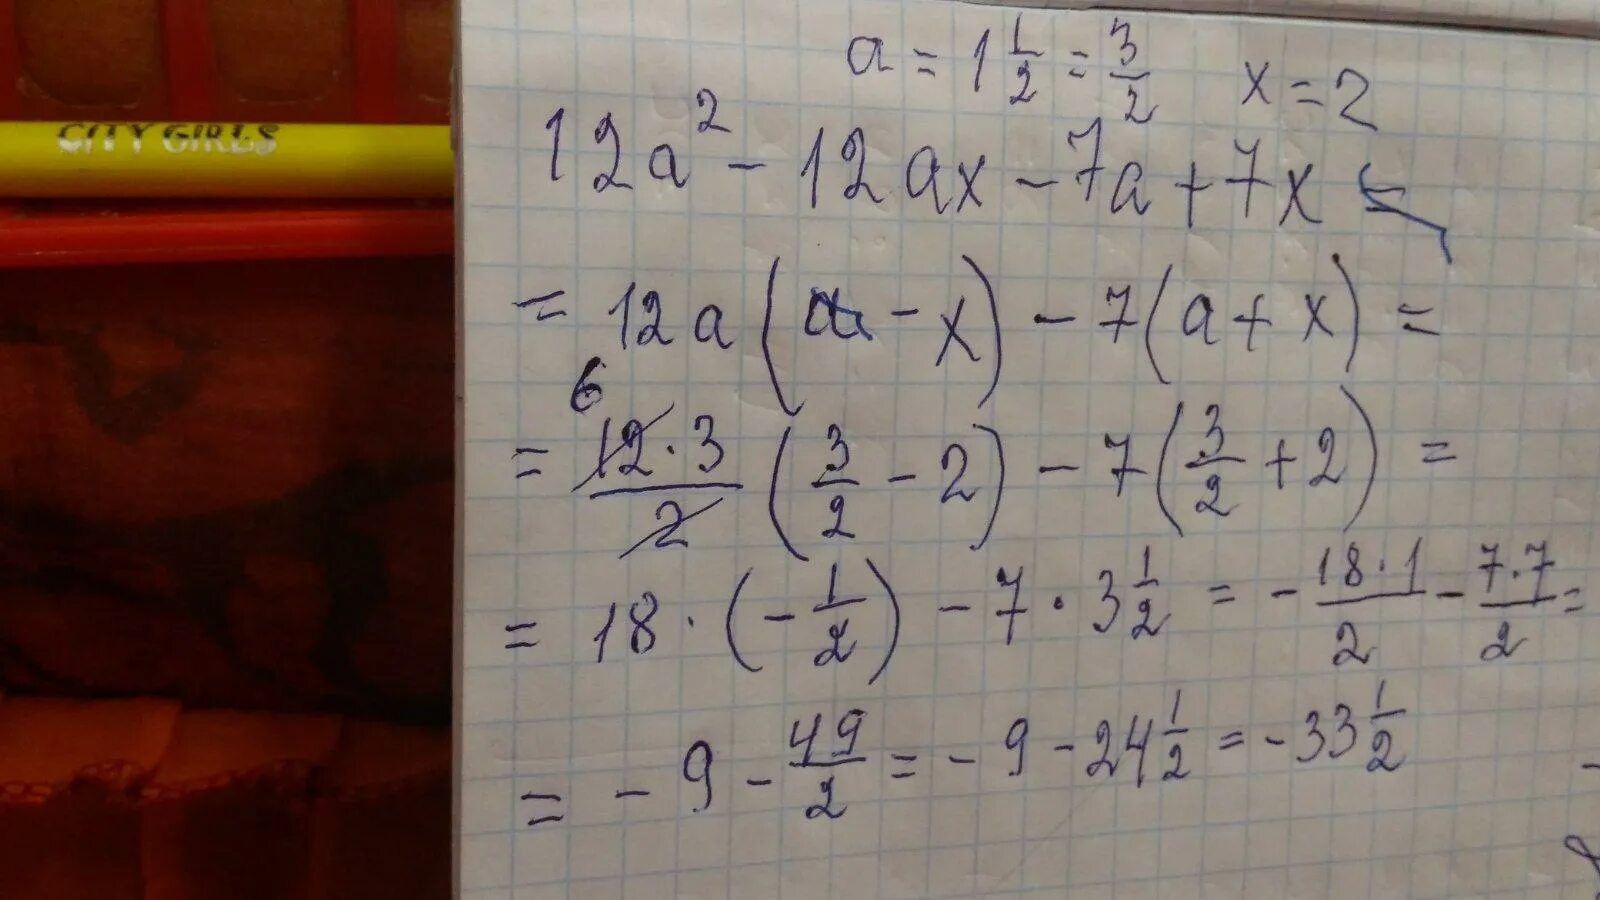 CITY GIRLS
a = 1 1/2 = 3/2 x = 2
12a² - 12ax - 7a + 7x =
= 12a(a - x) - 7(a + x) =
6
= 12·3/2 (3/2 - 2) - 7(3/2 + 2) =
= 18·(-1/2) - 7·3 1/2 = - 18·1/2 - 7·7/2 =
= - 9 - 49/2 = - 9 - 24 1/2 = - 33 1/2